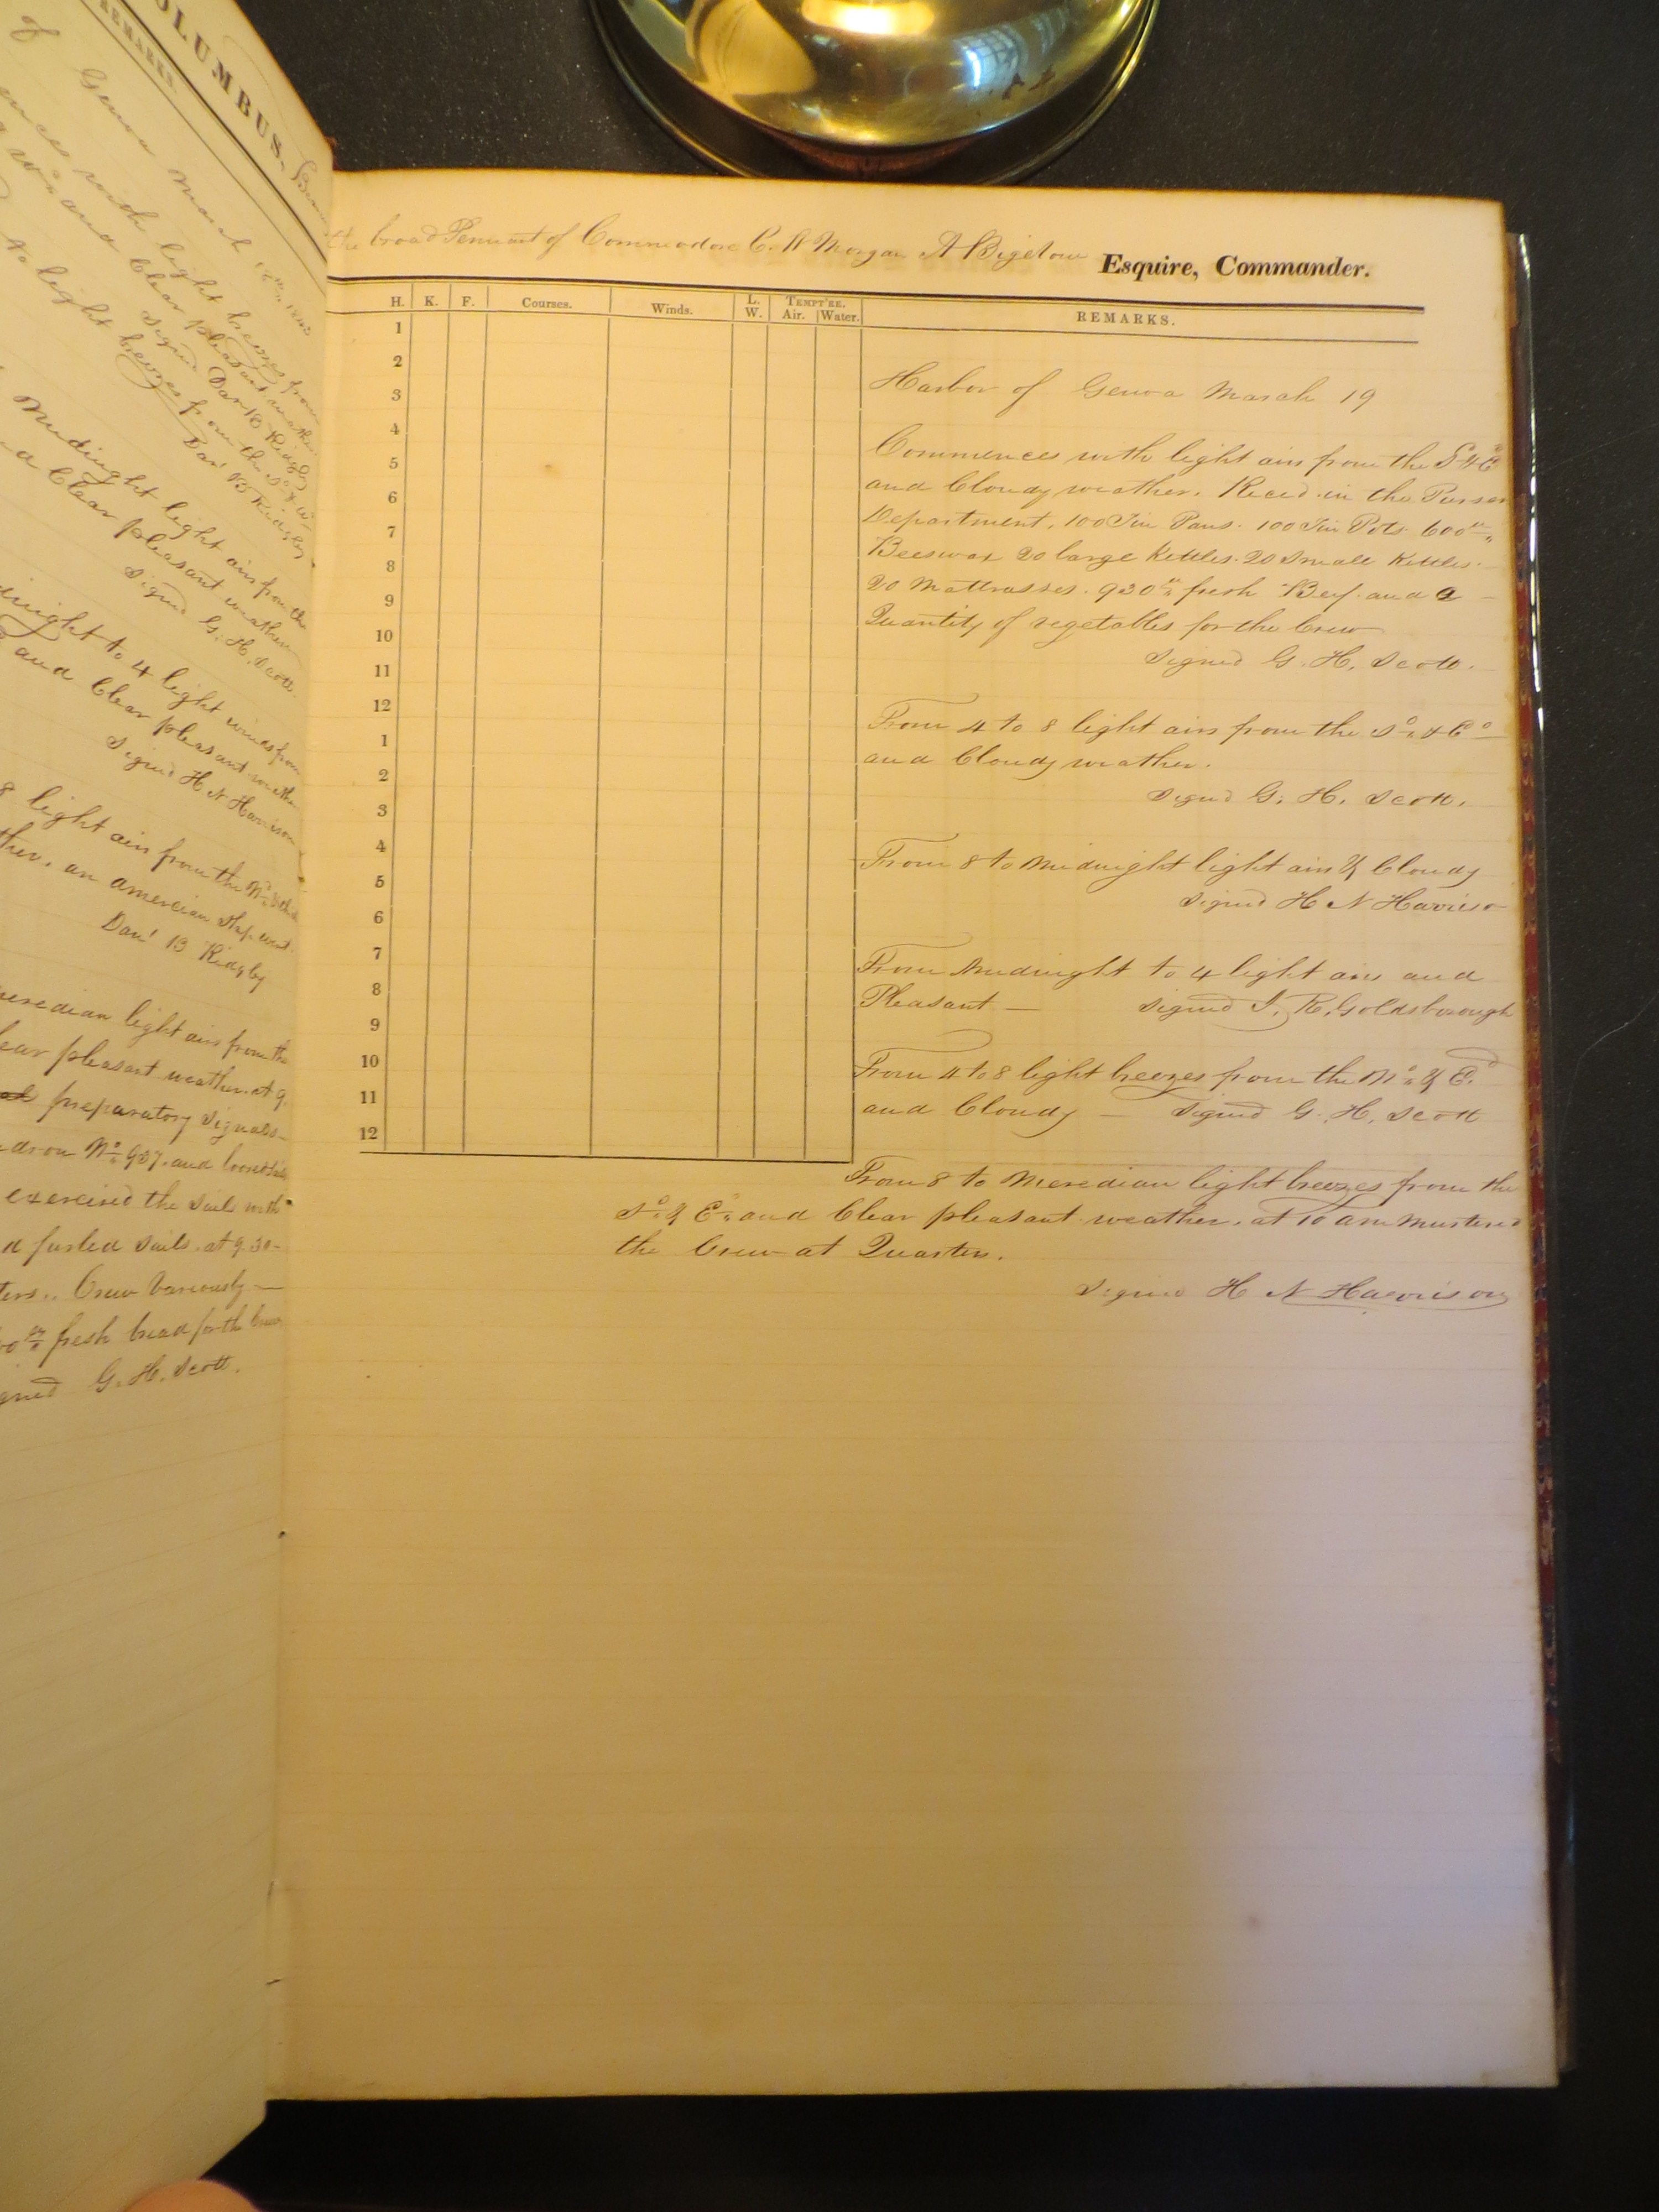 OLUMBUS,
REMARKS.
of Genoa March 18th 1843
ences with light breezes from
and Clear pleasant weather
Signed Dan B Ridgley
light breezes from the No & W
Dan' B Ridgley
Midnight light airs from the
a Clear pleasant weather
Signed G. H. Scott.
dnight to 4 light winds from
and Clear pleasant weather
Signed H N Harrison
8 light airs from the
ther. an american Ship
Dan' B Ridgley
meredian light airs from the
lear pleasant weather. at 9.
preparatory Signals
No 937. and loosed Sails
exercised the Sails with
d furled Sails. at 9.30
ters.. Crew Variously
fresh bread for the Crew
gned G. H. Scott.
the broad Pennant of Commodore C. W Morgan A Bigelow Esquire, Commander.
H. K. F. Courses. Winds. L. W. TEMPT'RE. Air. Water. REMARKS.
1
2
3
4
5
6
7
8
9
10
11
12
1
2
3
4
5
6
7
8
9
10
11
12
Harbor of Genoa March 19
Commences with light airs from the S & E
and Cloudy weather. Reced in the Purser
Department, 100 Tin Pans. 100 Tin Pots 600
Beeswax 20 large Kettles. 20 Small Kettles.
20 Mattrasses. 930 fresh Beef. and a
Quantity of vegetables for the Crew
Signed G. H. Scott.
From 4 to 8 light airs from the So & Eo
and Cloudy weather.
Signed G. H. Scott.
From 8 to Midnight light airs & Cloudy
Signed H N Harrison
From Midnight to 4 light airs and
Pleasant — Signed J. R. Goldsborough
From 4 to 8 light breezes from the No & Ed
and Cloudy — Signed G. H. Scott
From 8 to Meredian light breezes from the
So & E and Clear pleasant weather. at 10 am Mustered
the Crew at Quarters.
Signed H N Harrison